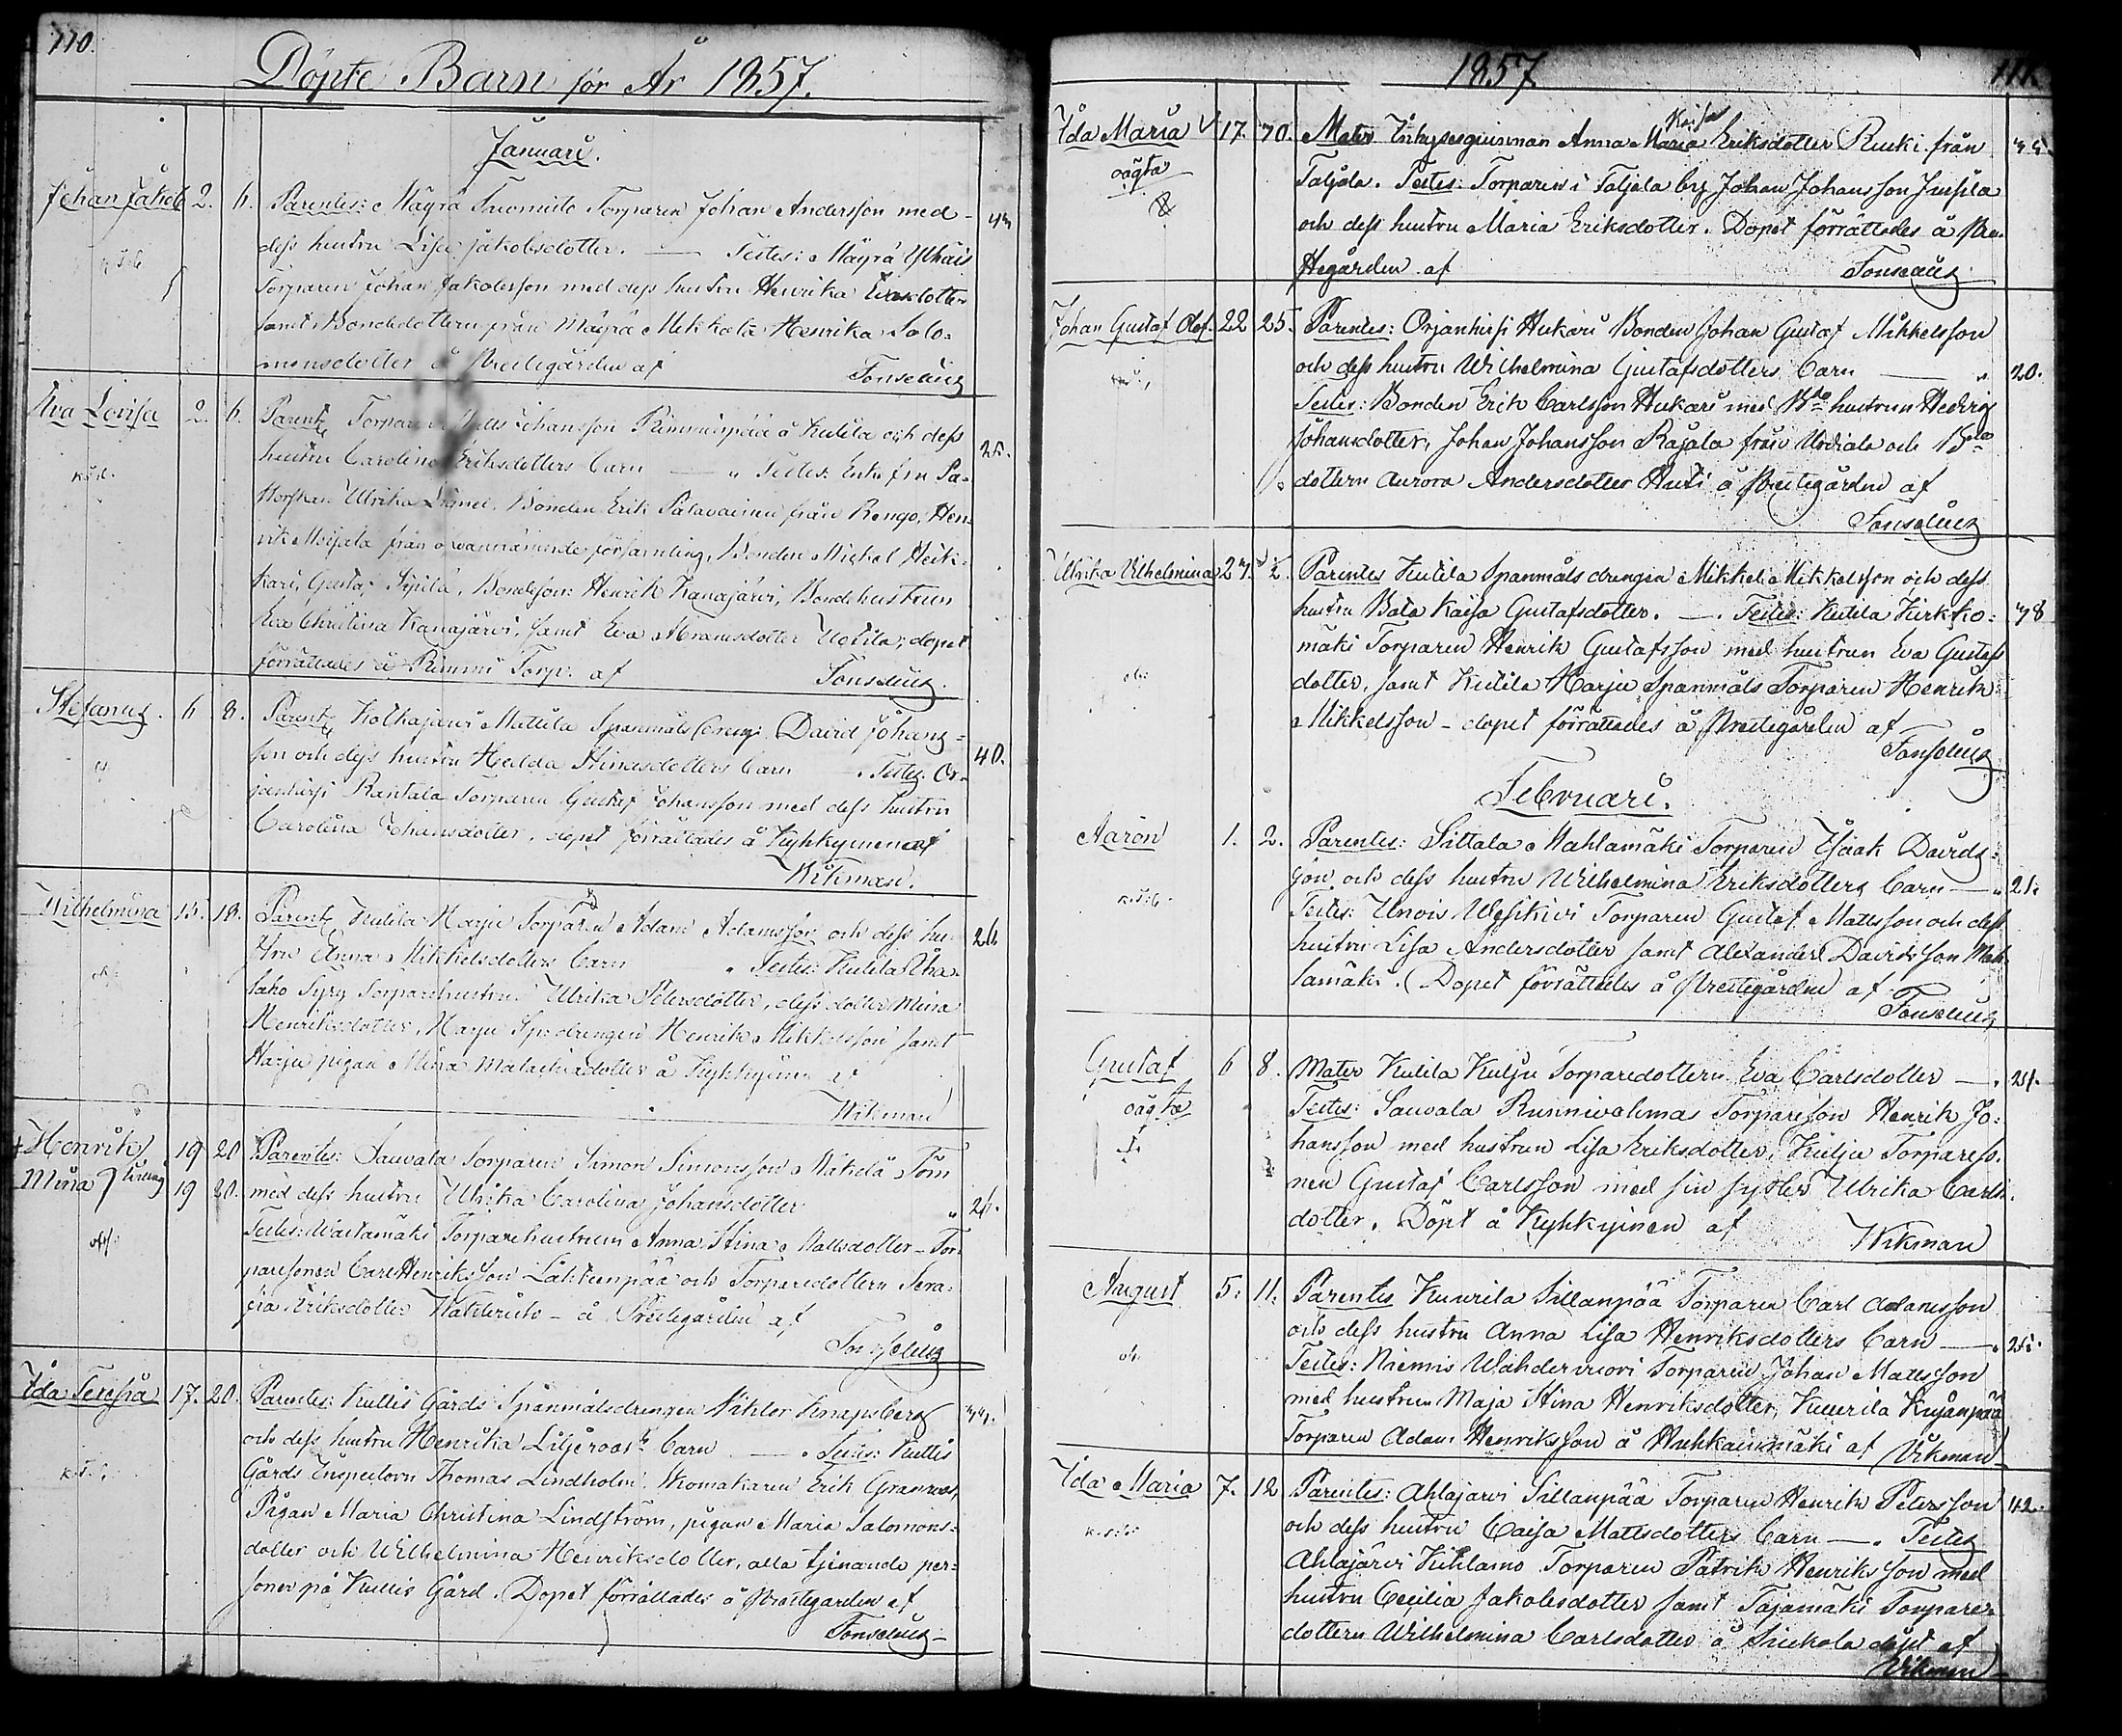 110.
Döpte Barn för År 1857.
Januari.
Johan Jakob 2. 6. Parentes: Mäyrä Tuomisto Torparen Johan Andersson med
dess hustru Lisa Jakobsdotter. — Testes: Mäyrä
Torparen Johan Jakobsson med dess hustru Henrika Evasdotter
samt Bondedottern från Mäyrä Mikkola Henrika Salo-
monsdotter å Prestegården af Fonselius
Eva Lovisa 2. 6. Parent: Torparen Johansson Rimminpää å Kutila och dess
hustru Carolina Eriksdotters barn — Testes: Enkefru Pa- 25.
storskan Ulrika Lignel, Bonden Erik från Rengo, Hen-
rik från ofvannämnde församling, Bonden Mickel Heik-
kari, Gustaf Anttila, Bondeson: Henrik Kanajärvi, Bondehustrun
Eva Christina Kanajärvi, samt Eva Abramsdotter Uotila; dopet
förrättades å Rimmi Torp. af Fonselius.
Stefanus. 6 8. Parent: Kolhajärvi Mattila Spanmåls dreng: David Johans-
son och dess hustru Hedda Stinasdotters barn . Testes: Or- 40.
janhirsi Rantala Torparen Gustaf Johansson med dess hustru
Carolina Johansdotter. dopet förrättades å Kyhkynen af
Wikman.
Wilhelmina 15. 18. Parent: Kutila Harju Torparen Adam Adamsson och dess hu-
stru Anna Mikkelsdotters barn . Testes: Kutila 26
Torparehustru Ulrika Petersdotter, dess dotter Mina
Henriksdotter, Harju Sp:drengen Henrik Mikkelsson samt
Harju pigan Mina Malachiadotter å Kyhkynen af
Wikman
+ Henrik 19 20 Parentes: Sauvala Torparen Simon Simonsson
Mina } tvilling 19 20. med dess hustru Ulrika Carolina Johansdotter „ 26.
Testes: Torparehustrun Anna Stina Mattsdotter – Tor-
paresonen Carl Henriksson Lähteenpää och Torparedottern Sera-
fia Eriksdotter – å Prestegården af
Fonselius
Ida Serafia 17. 20. Parentes: Kuttis Gårds Spanmålsdrengen Viktor Knapsberg
och dess hustru Henrika Liljeroos barn —. Testes: Kuttis
Gårds Inspectorn Thomas Lindholm, Skomakaren Erik Granroos,
Pigan Maria Christina Lindström, pigan Maria Salomons-
dotter och Wilhelmina Henriksdotter, alla tjenande per-
soner på Kuttis Gård. Dopet förrättades å Prestegården af
Fonselius
1857
111.
Ida Maria 17. 20. Mater Inhysesqvinnan Anna Maria Kaisa Eriksdotter Ruski från
oägta Taljala. Testes: Torparen i Taljala by Johan Johansson Jussila
och dess hustru Maria Eriksdotter. Dopet förrättades å Pre-
stegården af Fonselius
Johan Gustaf Olof. 22 25. Parentes: Orjanhirsi Hukari Bonden Johan Gustaf Mikkelsson
och dess hustru Wilhelmina Gustafsdotters barn — „ 20.
Testes: Bonden Erik Carlsson Hukari med hustrun Hedvig
Johansdotter, Johan Johansson Rajala från Urdiala och
dottern Aurora Andersdotter å Prestegården af
Fonselius
Ulrika Vilhelmina Parentes Kutila Spanmåls drengen Mikkel Mikkelsson och dess
hustru Kaisa Gustafsdotter. —. Testes: Kutila Kirkko-
mäki Torparen Henrik Gustafsson med hustrun Eva Gustafs
dotter, samt Kutila Harju Spanmåls Torparen Henrik
Mikkelsson – dopet förrättades å Prestegården af
Fonselius
Februari.
Aaron 1. 2. Parentes: Sittala Mahlamäki Torparen Isaak Davids-
son och dess hustru Wilhelmina Eriksdotters barn — „ 21.
Testes: Unois Torparen Gustaf Mattsson och dess
hustru Lisa Andersdotter samt Alexander Davidsson Mah-
lamäki. Dopet förrättades å Prestegården af
Fonselius
Gustaf 6 8. Mater Kutila Kulju Torparedottern Eva Carlsdotter —. 21.
oägta Testes: Sauvala Torpareson Henrik Jo-
hansson med hustrun Lisa Eriksdotter, Kulju Torpareso-
nen Gustaf Carlsson med sin syster Ulrika Carls-
dotter. Döpt å Kyhkynen af Wikman
August 5. 11. Parentes Kuurila Sillanpää Torparen Carl Adamsson
och dess hustru Anna Lisa Henriksdotters barn —. 25.
Testes: Niemis Torparen Johan Mattsson
med hustrun Maja Stina Henriksdotter, Kuurila Kujanpää
Torparen Adam Henriksson å af Vikman
Ida Maria 7. 12 Parentes: Ahlajärvi Sillanpää Torparen Henrik Petersson 42.
och dess hustru Caisa Mattsdotters barn —. Testes
Ahlajärvi Torparen Patrik Henriksson med
hustru Cecilia Jakobsdotter samt Tajamäki Torpare-
dottern Wilhelmina Carlsdotter å döpt af
Vikman